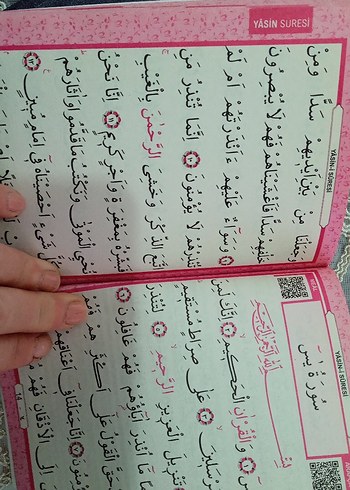 YÂSİN SURESİ
YASİN-İ SÛRESİ
سُورَةُ يٰسٓ
وَالْقُرْاٰنِ الْحَكِيمِ ۝٢ اِنَّكَ لَمِنَ
عَلٰى صِرَاطٍ مُسْتَقِيمٍ
تَنْزِيلَ الْعَزِيزِ الرَّحِيمِ ۝٥ لِتُنْذِرَ
مَٓا اُنْذِرَ اٰبَٓاؤُ۬هُمْ فَهُمْ غَافِلُونَ ۝٦
حَقَّ الْقَوْلُ عَلٰٓى اَكْثَرِهِمْ فَهُمْ
اِنَّا جَعَلْنَا فِٓي اَعْنَاقِهِمْ
اِلَى الْاَذْقَانِ فَهُمْ
YASİN-İ SÛRESİ
وَجَعَلْنَا مِنْ بَيْنِ اَيْدِيهِمْ سَدًّا وَمِنْ
خَلْفِهِمْ سَدًّا فَاَغْشَيْنَاهُمْ فَهُمْ لَا يُبْصِرُونَ
وَسَوَٓاءٌ عَلَيْهِمْ ءَاَنْذَرْتَهُمْ اَمْ لَمْ
تُنْذِرْهُمْ لَا يُؤْمِنُونَ ۝١٠ اِنَّمَا تُنْذِرُ مَنِ
اتَّبَعَ الذِّكْرَ وَخَشِيَ الرَّحْمٰنَ بِالْغَيْبِ
فَبَشِّرْهُ بِمَغْفِرَةٍ وَاَجْرٍ كَرِيمٍ ۝١١ اِنَّا نَحْنُ
نُحْيِ الْمَوْتٰى وَنَكْتُبُ مَا قَدَّمُوا وَاٰثَارَهُمْ
شَيْءٍ اَحْصَيْنَاهُ فِٓي اِمَامٍ مُبِينٍ ۝١٢